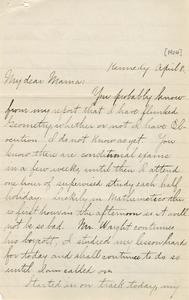 [1904]
Kennedy April 8,
My dear Mama:
You probably know
from my report that I have flunked
Geometry, whether or not I have El-
ocution I do not know as yet. You
know there are conditional exams
in a few weeks, until then I attend
one hour of supervised study each half
holiday. in Mathematics the
rest hour in the afternoon so it will
not be so bad. Mr. continues
his, I studied my lesson hard
for today and shall continues to do so
until I am called on.
Started in on track today, my